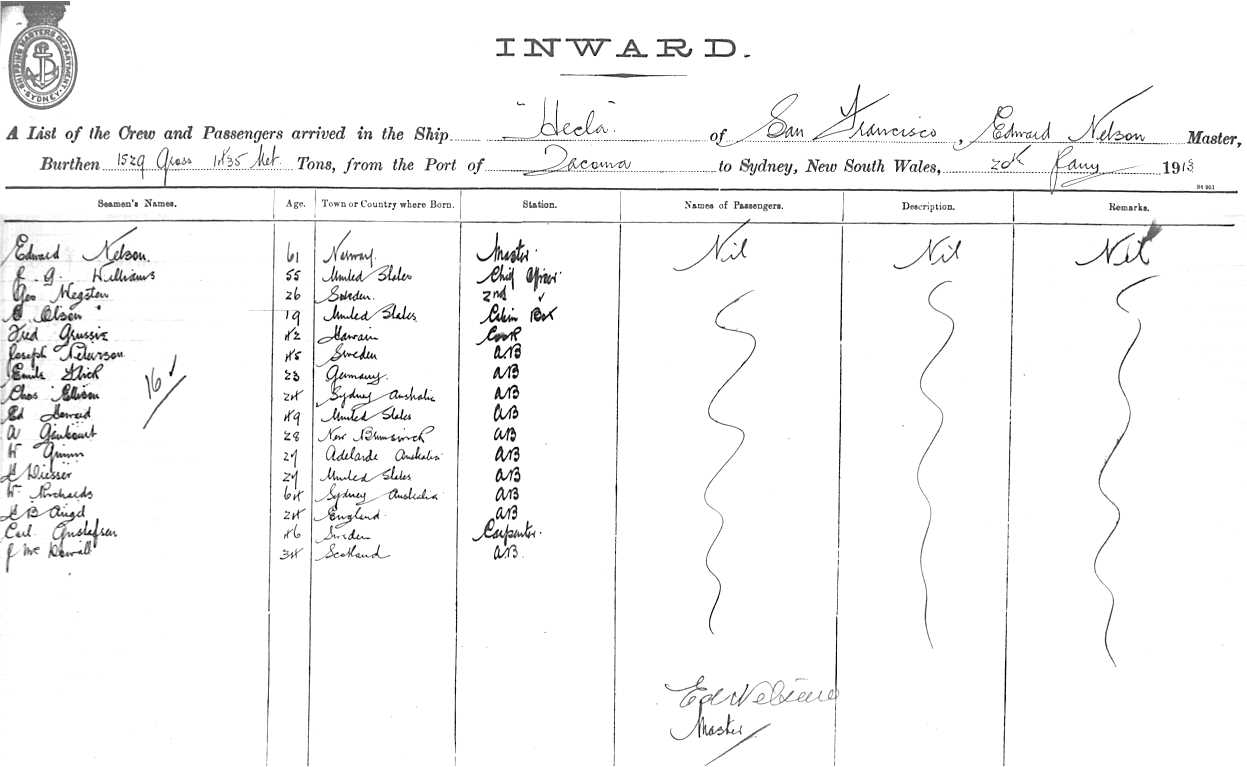 SHIPPING MASTERS DEPARTMENT SYDNEY
INWARD.
A List of the Crew and Passengers arrived in the Ship "Hecla" of San Francisco, Edward Nelson Master,
Burthen 1529 Gross Net. Tons, from the Port of Tacoma to Sydney, New South Wales, 20th Jany 1913
Seamen's Names. Age. Town or Country where Born. Station. Names of Passengers. Description. Remarks.
Edward Nelson. 61 Norway. Master. Nil Nil Nil
G. Williams 55 United States Chief Officer
Geo Megsten 26 Sweden. 2nd "
Olson 19 United States Cabin Boy
Fred 42 Cook
Joseph Peterson 45 Sweden AB
Emile 23 Germany. AB
Chas Ellison 24 Sydney Australia AB
16
Ed Howard 49 United States AB
A 28 New Brunswick AB
W 27 Adelaide Australia AB
27 United States AB
W Richards 64 Sydney Australia AB
B Angel 24 England. AB
Carl Gustafsen 46 Sweden Carpenter.
J Mc 34 Scotland AB.
Ed Nelson
Master